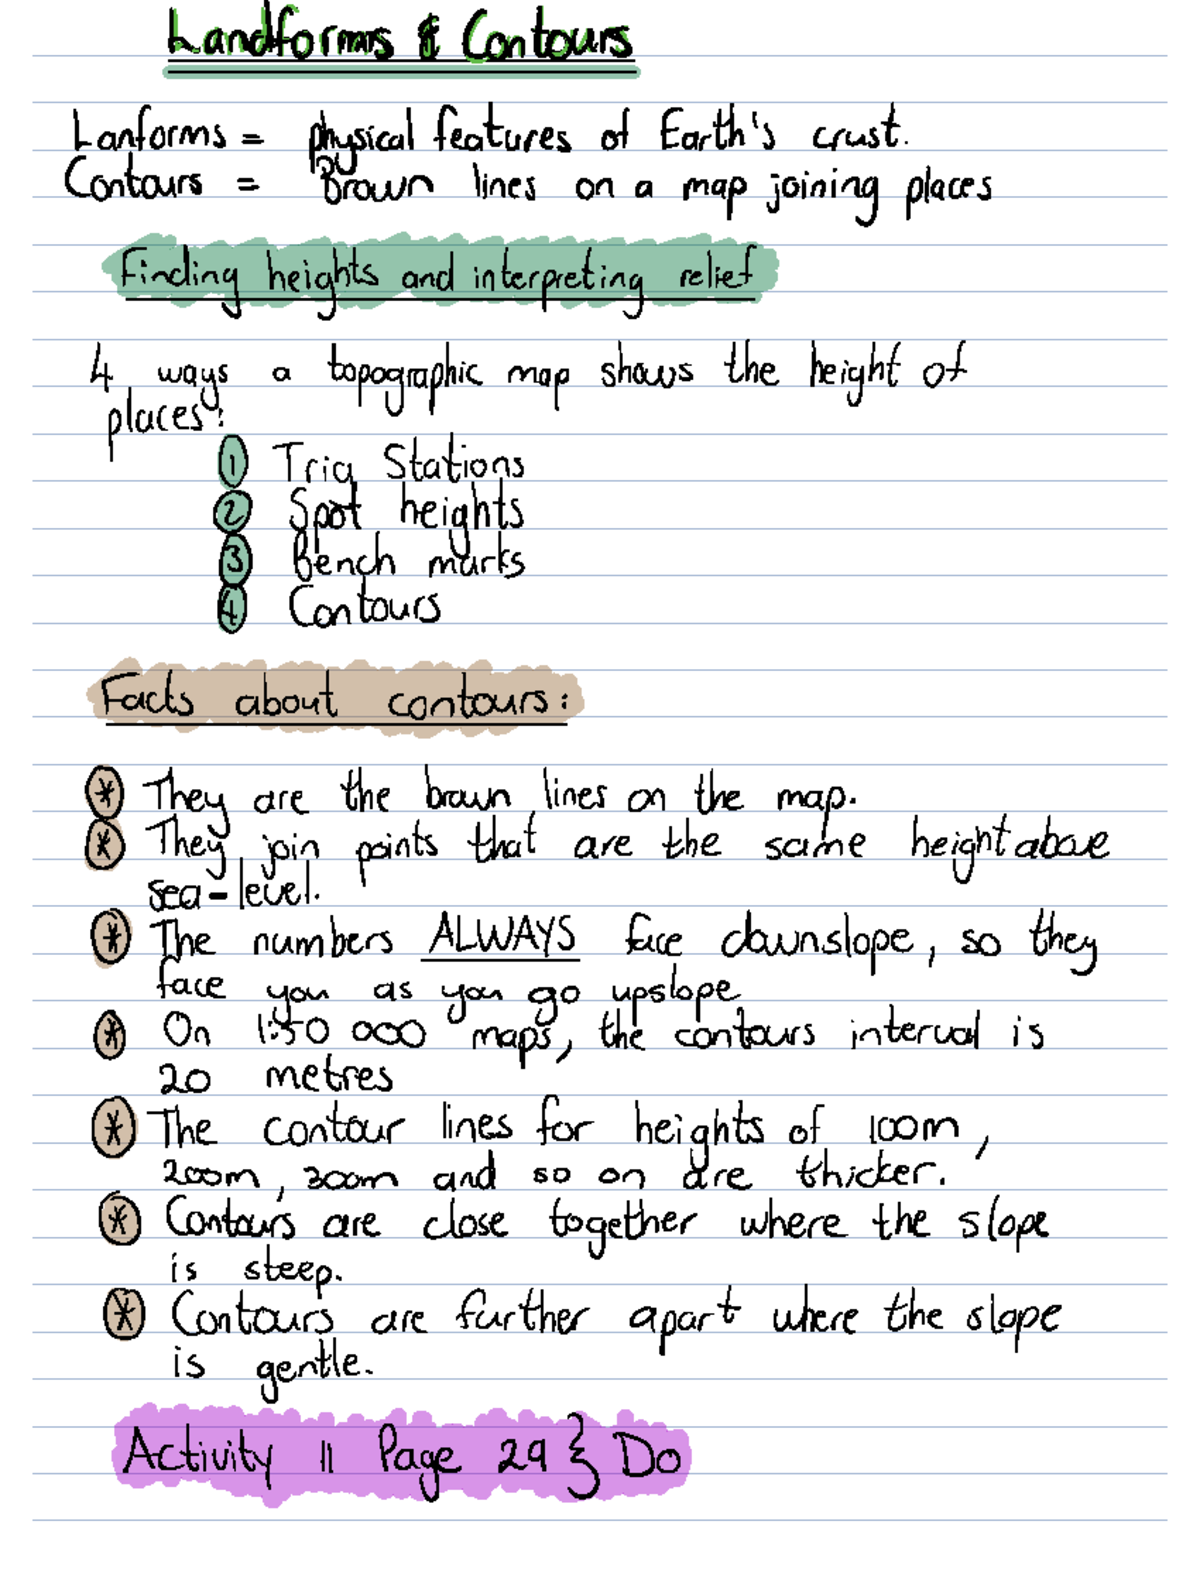 Landforms & Contours
Lanforms = physical features of Earth's crust.
Contours = Brown lines on a map joining places
Finding heights and interpreting relief
4 ways a topographic map shows the height of
places:
1 Trig Stations
2 Spot heights
3 Bench marks
4 Contours
Facts about contours:
* They are the brown lines on the map.
* They join points that are the same height above
sea-level.
* The numbers ALWAYS face downslope, so they
face you as you go upslope
* On 1:50 000 maps, the contours interval is
20 metres
* The contour lines for heights of 100m,
200m, 300m and so on are thicker.
* Contours are close together where the slope
is steep.
* Contours are further apart where the slope
is gentle.
Activity 11 Page 29 } Do